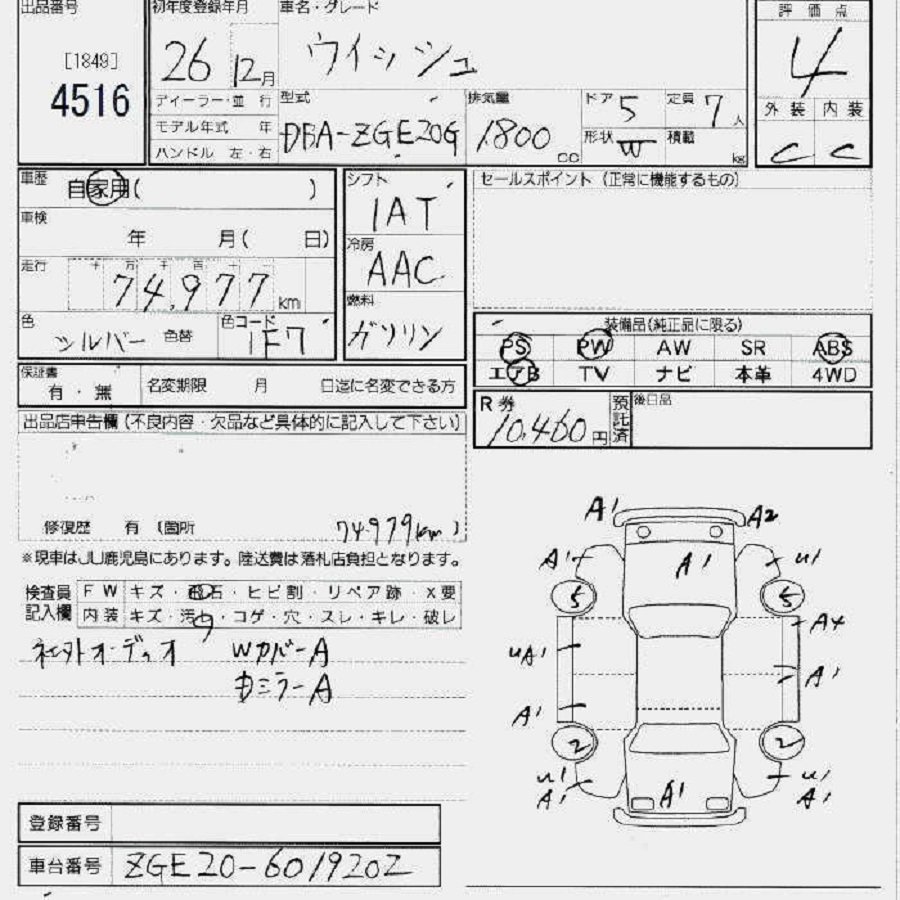 出品番号
[1849]
4516
初年度登録年月
26 12月
車名・グレード
ウイッシュ
評価点
4
外装 内装
C C
ディーラー・並行
モデル年式 年
ハンドル 左・右
型式
DBA-ZGE20G
排気量
1800 cc
ドア 5
定員 7人
形状 W
積載 kg
車歴
自家用( )
車検
年 月( 日)
走行
十 万 千 百 十 一
74,977 km
色
シルバー 色替
色コード
1F7
シフト
IAT
冷房
AAC
燃料
ガソリン
セールスポイント (正常に機能するもの)
装備品(純正品に限る)
PS PW AW SR ABS
エアB TV ナビ 本革 4WD
保証書
有・無
名変期限 月 日迄に名変できる方
R券
10,460円
預託済
後日品
出品店申告欄(不良内容・欠品など具体的に記入して下さい)
修復歴 有 (箇所 74979km)
※現車はJU鹿児島にあります。陸送費は落札店負担となります。
検査員記入欄
FW キズ・飛石・ヒビ割・リペア跡・X要
内装 キズ・汚れ・コゲ・穴・スレ・キレ・破レ
社外オーディオ WカバーA
DミラーA
A1 A2
A1 A1 U1
5 5
A4
UA1 A1
A1
2 2
U1 U1
A1 A1 A1
登録番号
車台番号 ZGE20-6019202